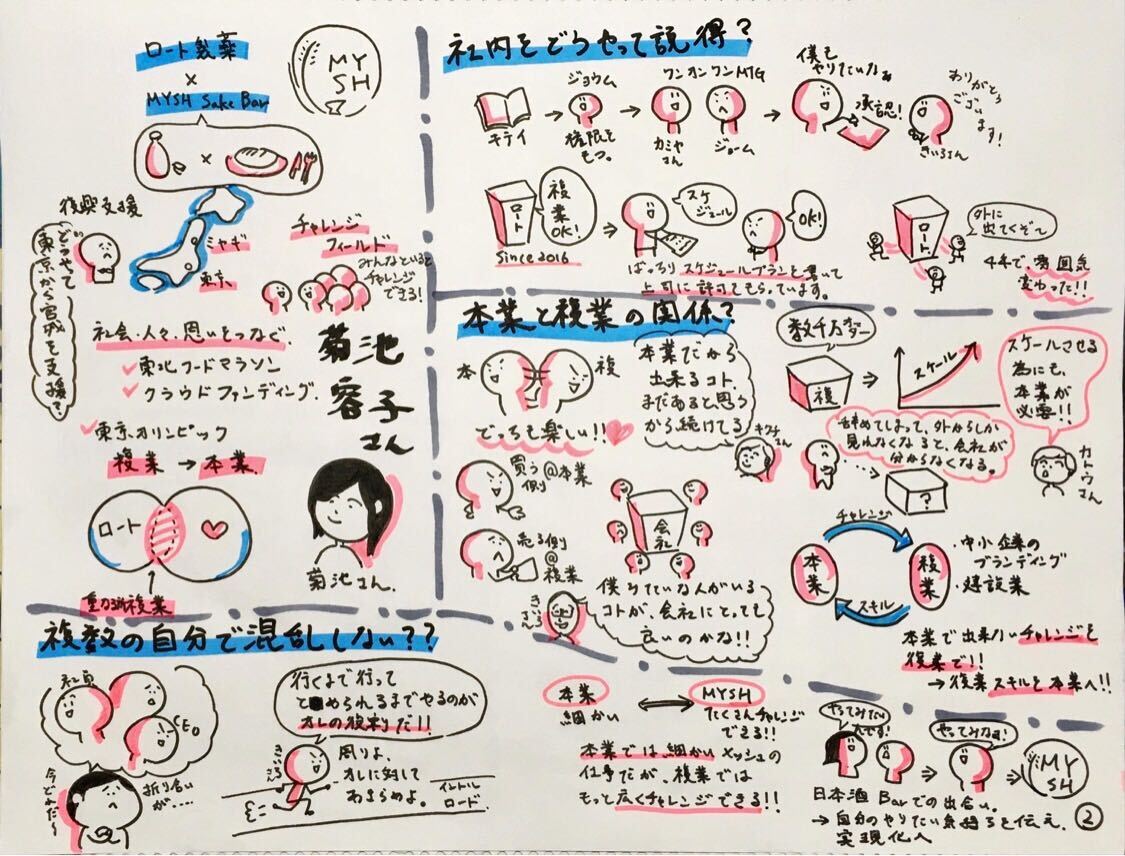 ロート製薬
×
MYSH Sake Bar
MY
SH
×
復興支援
どうやって
東京から宮城を支援?
ミヤギ
東京
チャレンジ
フィールド
みんなといると
チャレンジ
できる!
社会・人々・思いをつなぐ
東北フードマラソン
クラウドファンディング
東京オリンピック
複業→本業
ロート
複業
菊池
容子
さん
菊池さん
社内をどうやって説得?
キテイ
→
ジョウム
権限を
もつ。
→
ワンオンワンMTG
カミヤ
さん
ジョーム
→
僕も
やりたいなぁ
承認!
ありがとう
ござい
ます!
きいろさん
ロート
複
業
OK!
Since 2016
スケ
ジュール
OK!
ばっちりスケジュールプランを書いて
上司に許可をもらっています。
ロート
外に
出てくぞて
4年で雰囲気
変わった!!
本業と複業の関係?
本
複
どっちも楽しい!!
本業だから
出来るコト、
まだあると思う
から続けてる
キクチさん
買う
側
@本業
売る側
@
複業
会社
きいろ
さん
僕みたいな人がいる
コトが、会社にとっても
良いのかな!!
複
スケール
スケールさせる
為にも、
本業が
必要!!
カトウさん
辞めてしまって、外からしか
見れなくなると、会社が
分からなくなる。
?
チャレンジ
本業
複業
スキル
・中小企業の
ブランディング
・建設業
本業で出来ないチャレンジを
複業で!!
→複業スキルを本業へ!!
複数の自分で混乱しない??
社員
CEO
今どれだ~
折り合い
が・・・・
行くまで行って
められるまでやるのが
オレの役割だ!!
きいろ
さん
周りよ、
オレに対して
あきらめよ。
ロード
本業
細かい
MYSH
たくさんチャレンジ
できる!!
本業では細かいメッシュの
仕事だが、複業では
もっと広くチャレンジできる!!
やってみたい
んです!
やってみなよ!
MY
SH
日本酒Barでの出会い。
→自分のやりたい気持ちを伝え、
実現化へ
②